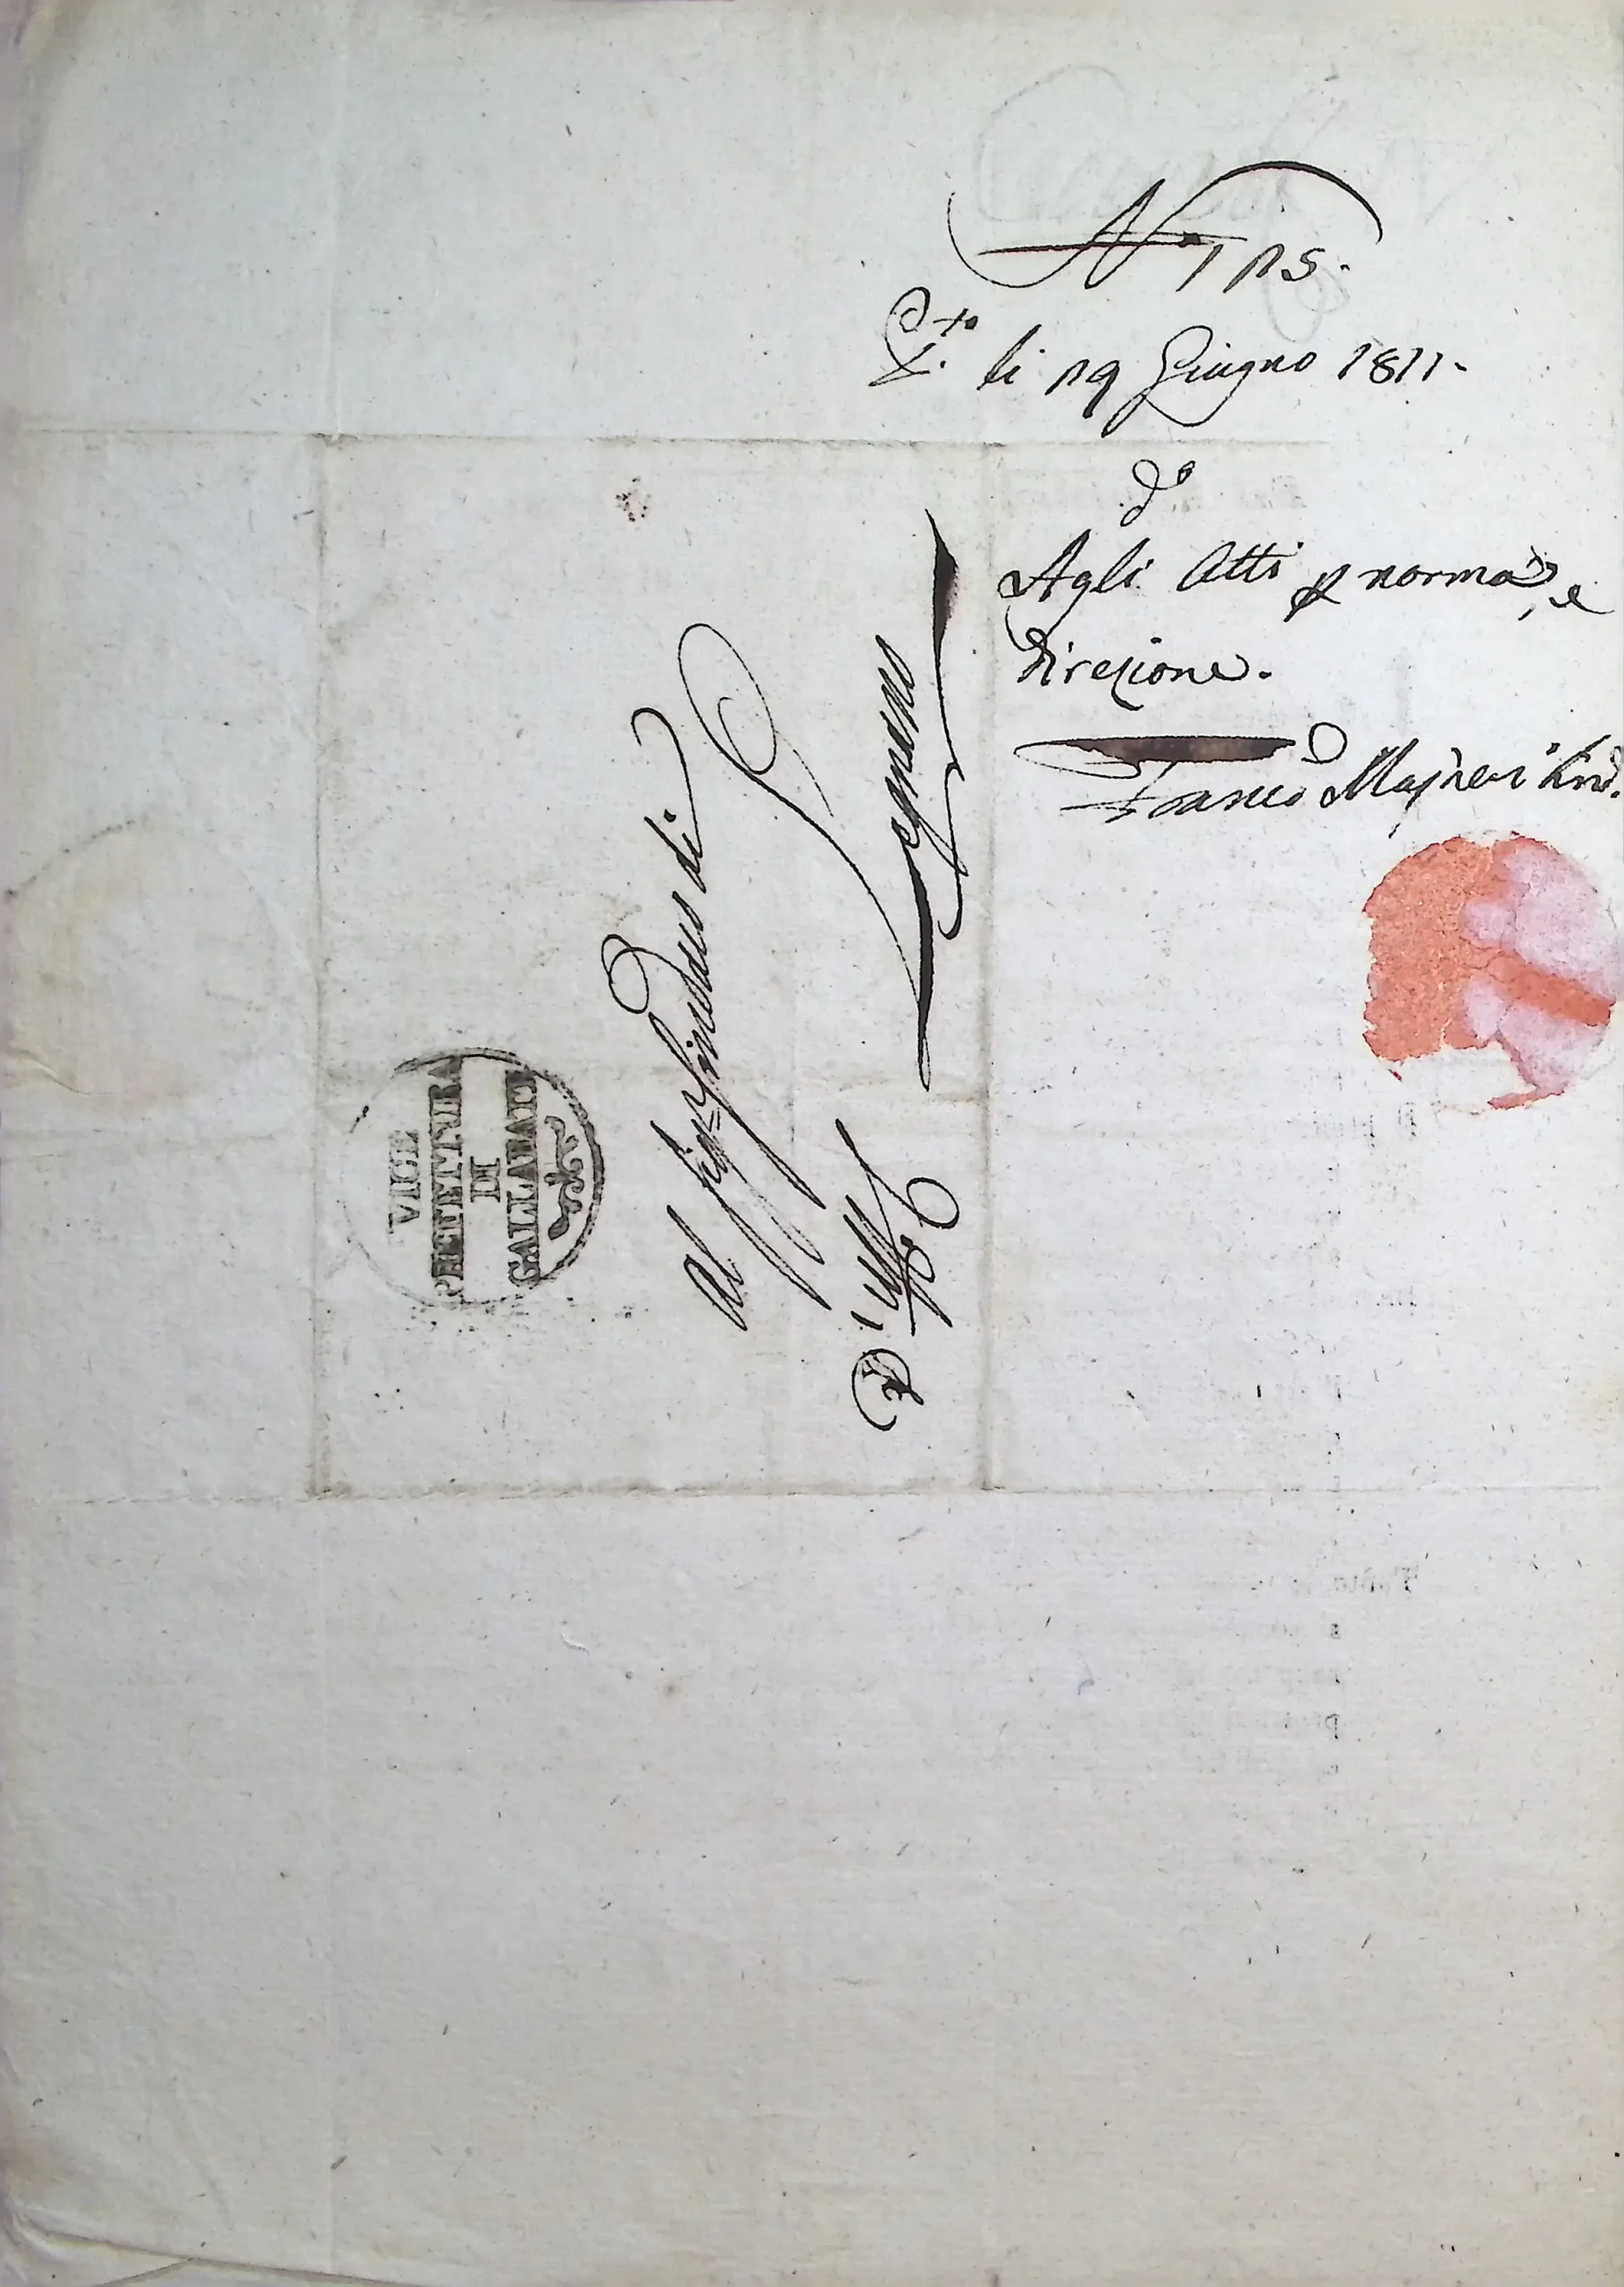 N.° 125.
P.to li 29 Giugno 1811.
d.°
Agli Atti p norma, e
direzione.
Franco
VICE
PREFETTURA
DI
GALLARATE
Al Sig.r Sindaco di
D'Uff.o Legnano